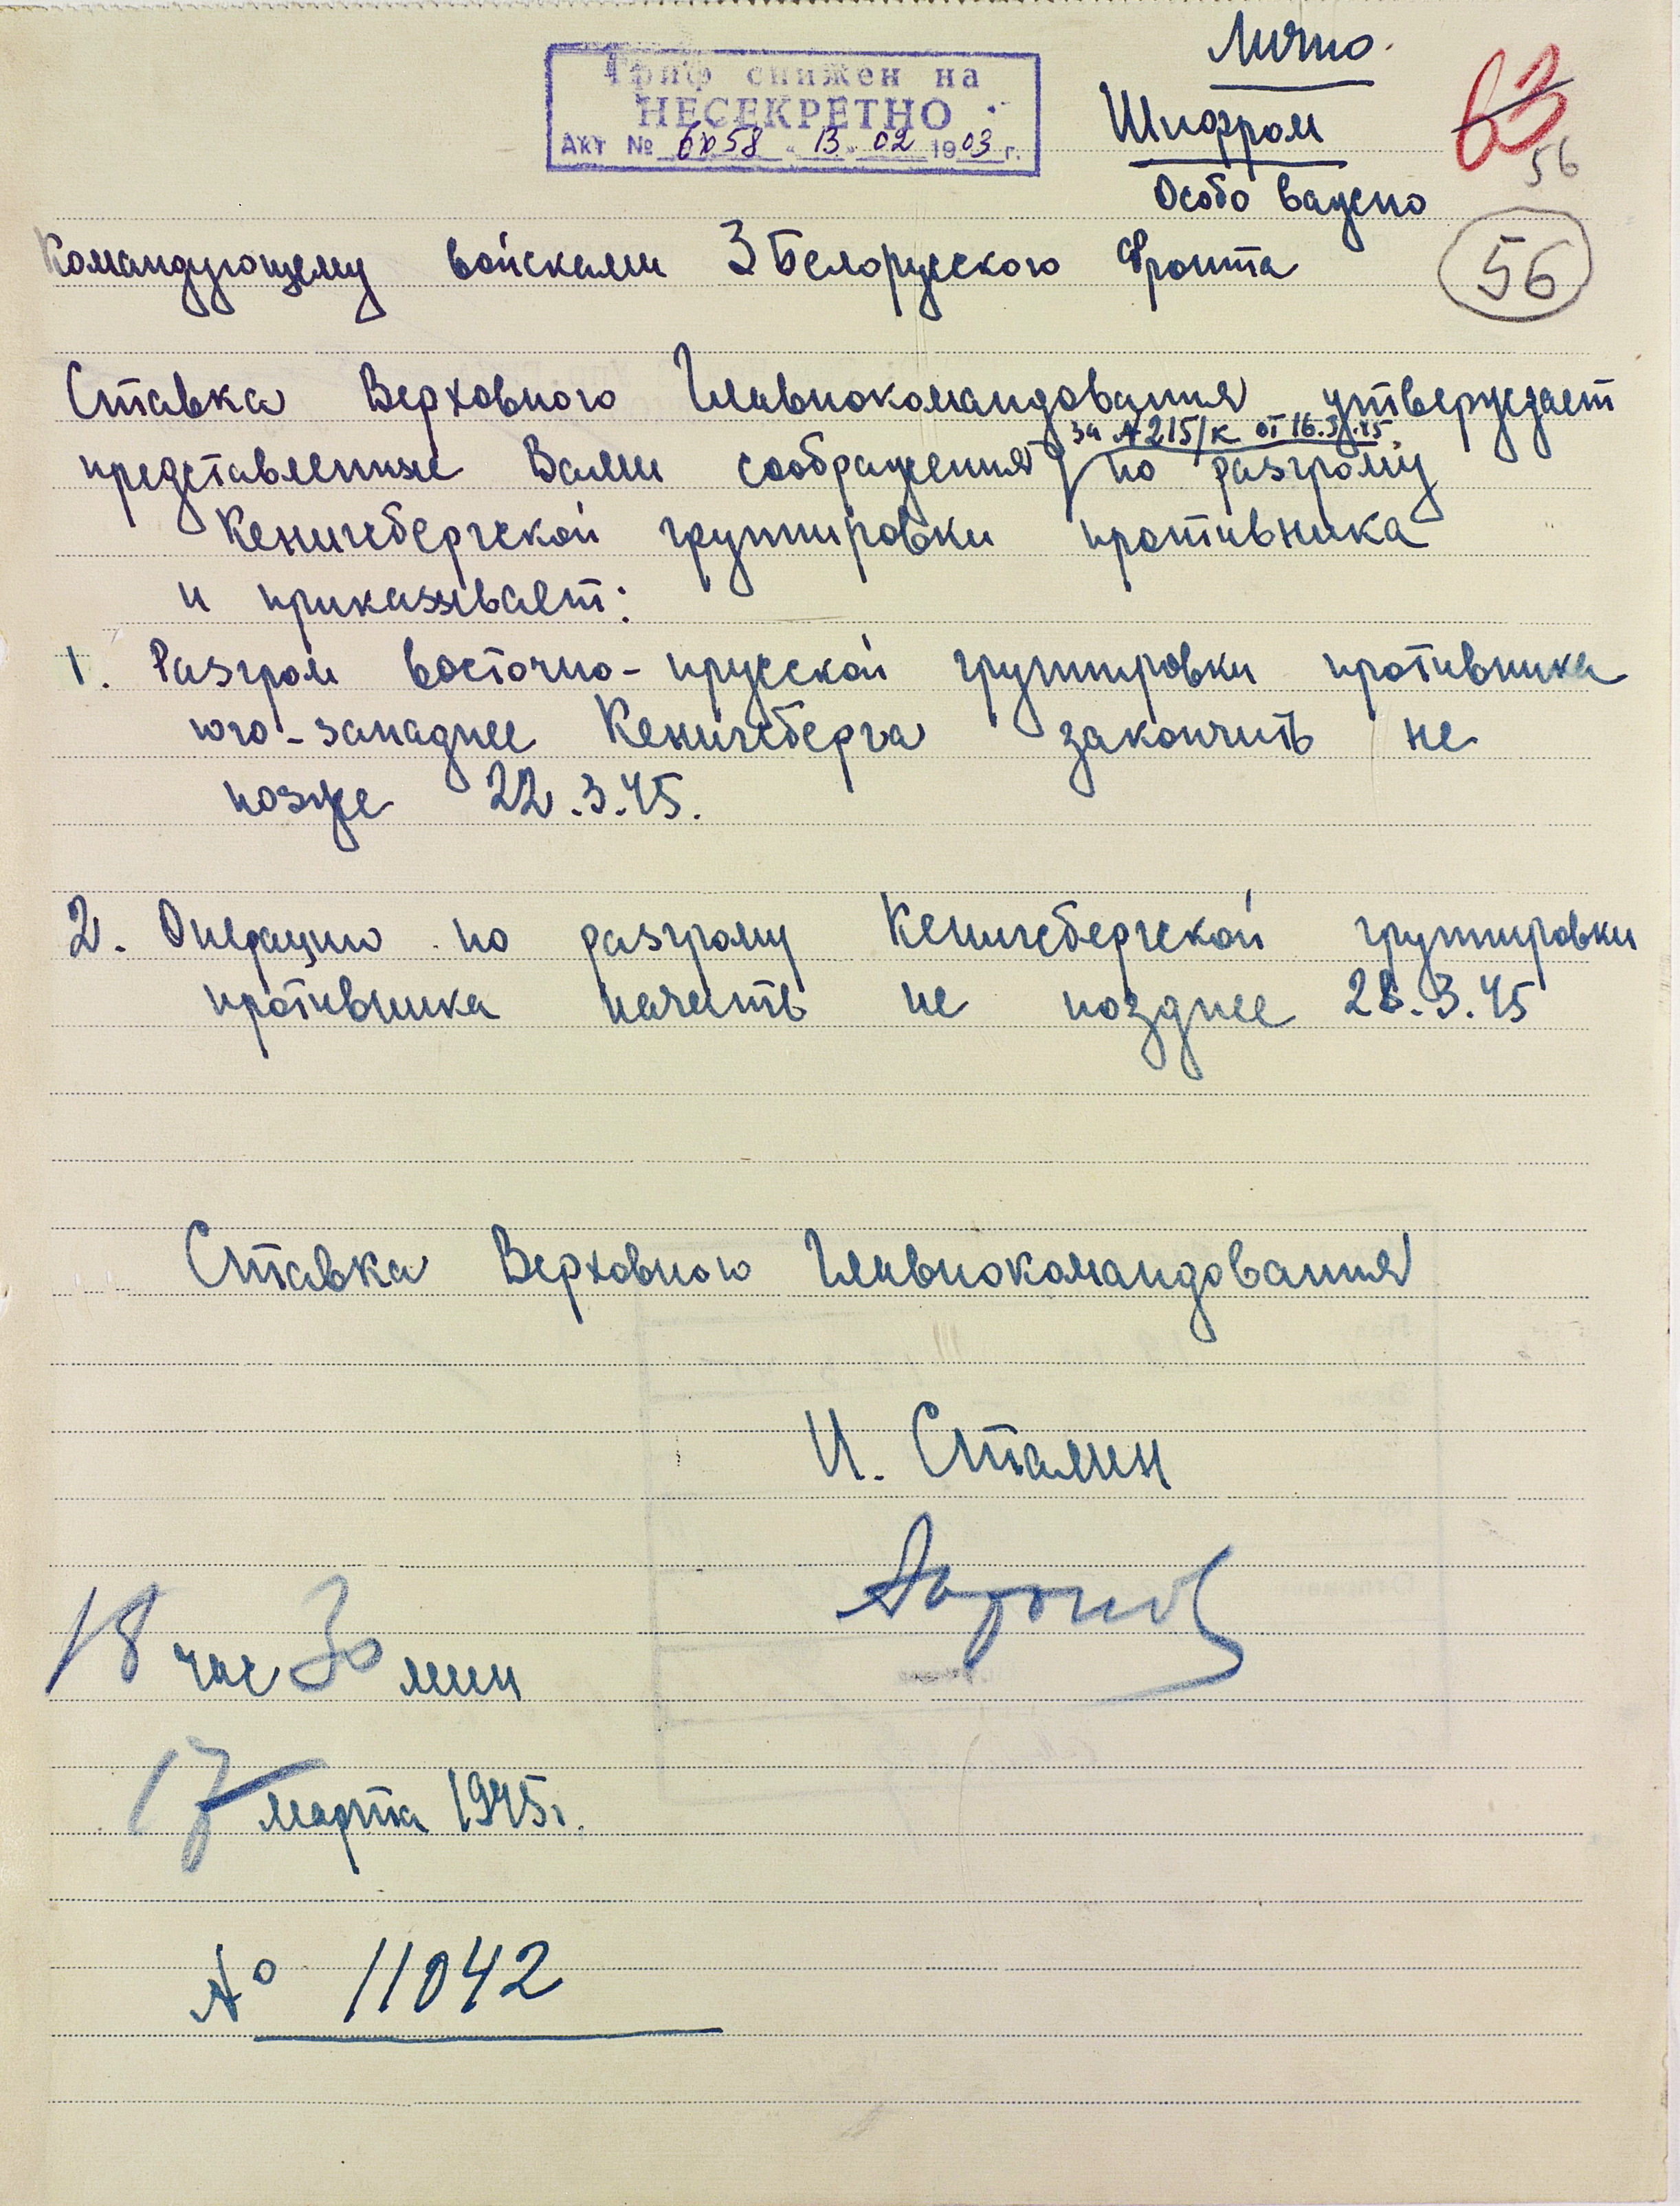 Лично.
Гриф снижен на
НЕСЕКРЕТНО
Акт № 6/058 "13" 02 1903 г.
Шифром
63
56
Особо важно
Командующему войсками 3 Белорусского Фронта
56
Ставка Верховного Главнокомандования утверждает
за № 215/к от 16.3.45.
представленные Вами соображения по разгрому
Кенигсбергской группировки противника
и приказывает:
1. Разгром восточно-прусской группировки противника
юго-западнее Кенигсберга закончить не
позже 22.3.45.
2. Операцию по разгрому Кенигсбергской группировки
противника начать не позднее 28.3.45
Ставка Верховного Главнокомандования
И. Сталин
Антонов
18 час 30 мин
17 марта 1945г.
№ 11042